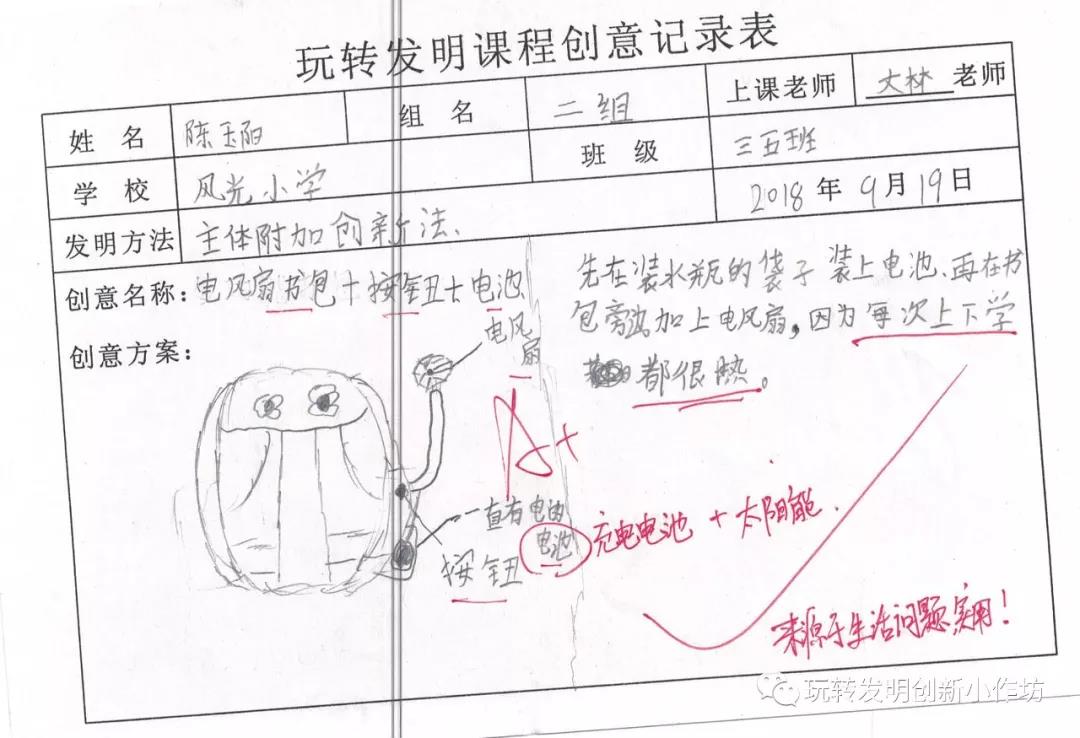 玩转发明课程创意记录表
姓名 陈玉阳 组名 二组 上课老师 大林老师
学校 风光小学 班级 三五班
2018年9月19日
发明方法 主体附加创新法、
创意名称：电风扇书包+按钮+电池
创意方案：
电风
扇
先在装水瓶的袋子装上电池、再在书
包旁边加上电风扇，因为每次上下学
都很热。
A+
一直有电的
电池
按钮
充电电池 + 太阳能.
来源于生活问题实用！
玩转发明创新小作坊